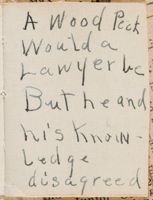 A Wood Peck
Would a
Lawyer be
But he and
his Know-
ledge
disagreed